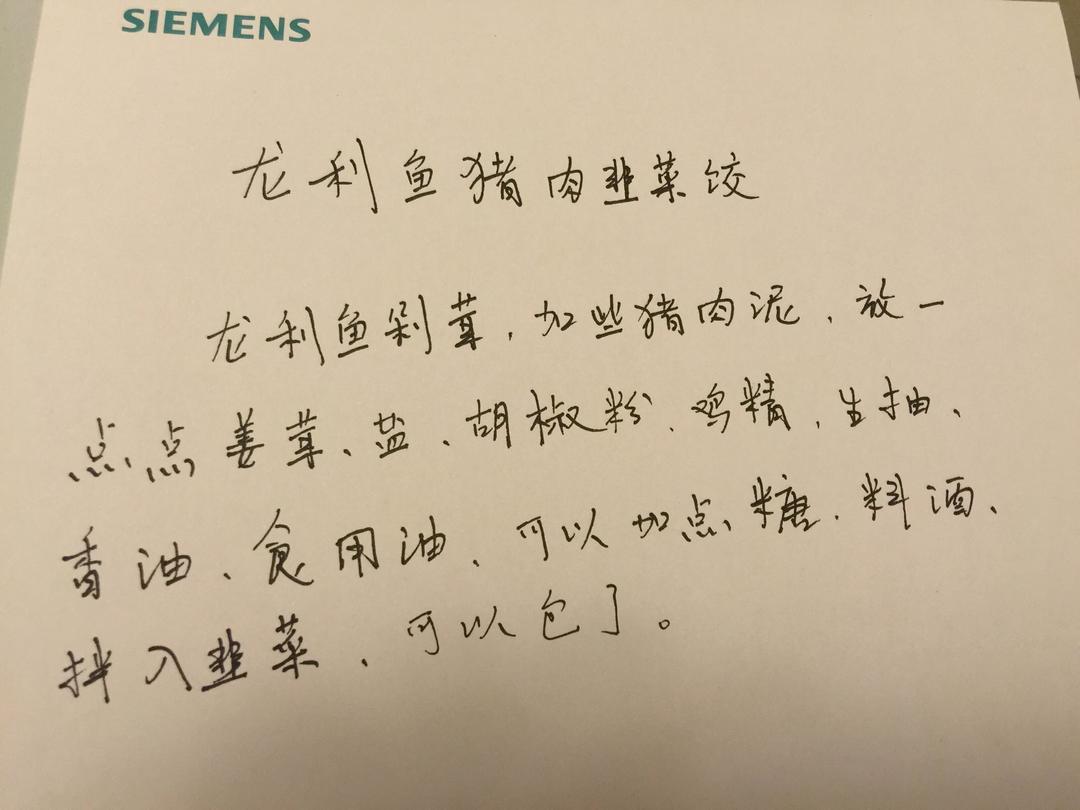 SIEMENS
龙利鱼猪肉韭菜饺
龙利鱼剁茸，加些猪肉泥，放一
点点姜茸、盐、胡椒粉、鸡精、生抽、
香油、食用油、可以加点糖、料酒、
拌入韭菜，可以包了。